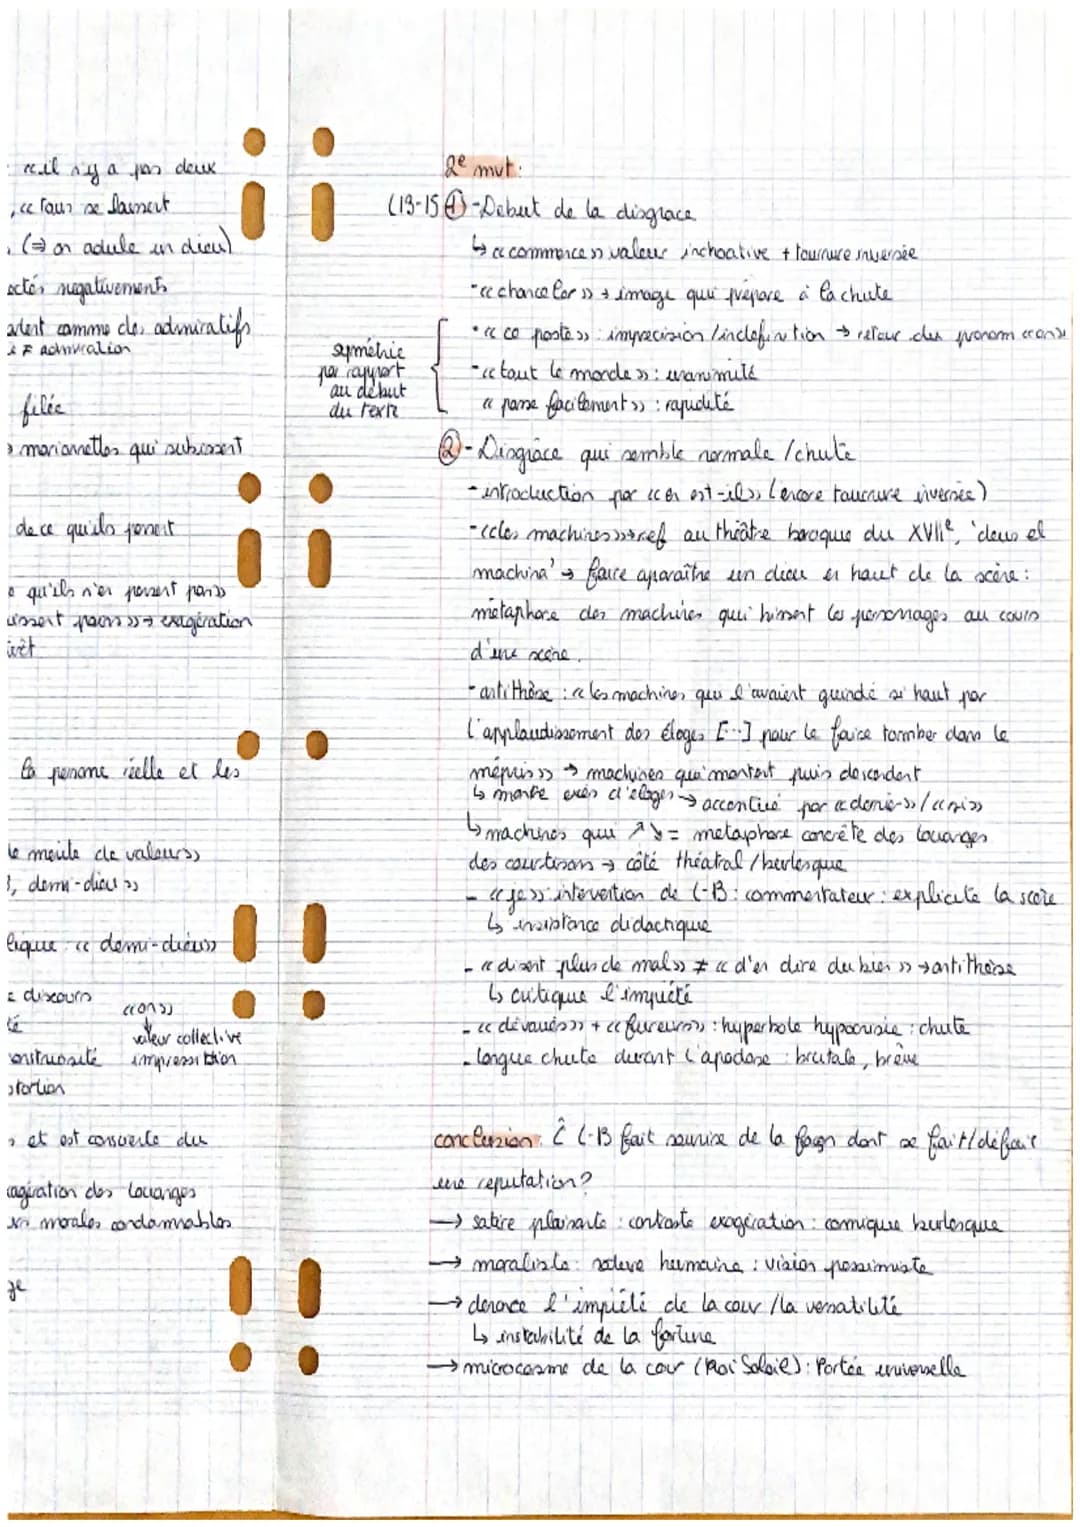 « il n'y a pas deux
, « tous se laissent
(⇒ on adule un dieu)
négativements
comme des admiratifs
≠ admiration
filée
marionnettes qui subissent
de ce qu'ils pensent
qu'ils n'en pensent pas »
pas » → exagération
la personne réelle et les
de mérite de valeurs »
, demi-dieu »
« demi-dieu »
discours
« on »
↓
valeur collective
impression
et est consuerte du
exagération des louanges
morales condamnables
2e mvt:
(13-15 ① - Début de la disgrace
↳ « commence » valeur inchoative + tournure inversée
- « chanceler » → image qui prépare à la chute
- « ce poste » : imprécision / indéfinition → retour du pronom « on »
- « tout le monde » : unanimité
« passe facilement » : rapidité
symétrie
par rapport
au début
du texte
② - Disgrâce qui semble normale / chute
- introduction par « en est-il » (encore tournure inversée)
- « les machines » → ref au théâtre baroque du XVIIe, 'deus el
machina' → faire aparaître un dieu en haut de la scène :
métaphore des machines qui hissent les personnages au cours
d'une scène.
- antithèse : « les machines qui l'avaient guindé si haut par
l'applaudissement des éloges [...] pour le faire tomber dans le
mépris » → machines qui montent puis descendent
↳ marke exès d'éloges → accentué par « dernier » / « si »
↳ machines qui ↗↘ = métaphore concrète des louanges
des courtisans → côté théatral / burlesque
- « je » : intervention de L-B : commentateur : explicite la scène
↳ insistance didactique
- « disent plus de mal » ≠ « d'en dire du bien » → antithèse
↳ critique l'impiété
- « dévoués » + « fureurs » : hyperbole hypocrisie : chute
- longue chute durant l'apodose : brutale, brève
conclusion : Ĉ L-B fait sourire de la façon dont se fait/défait
une reputation ?
→ satire plaisante : contraste exagération : comique burlesque
→ moraliste : nature humaine : vision pessimiste
→ dénonce l'impiété de la cour / la versatilité
↳ instabilité de la fortune
→ microcosme de la cour (Roi Soleil) : Portée universelle